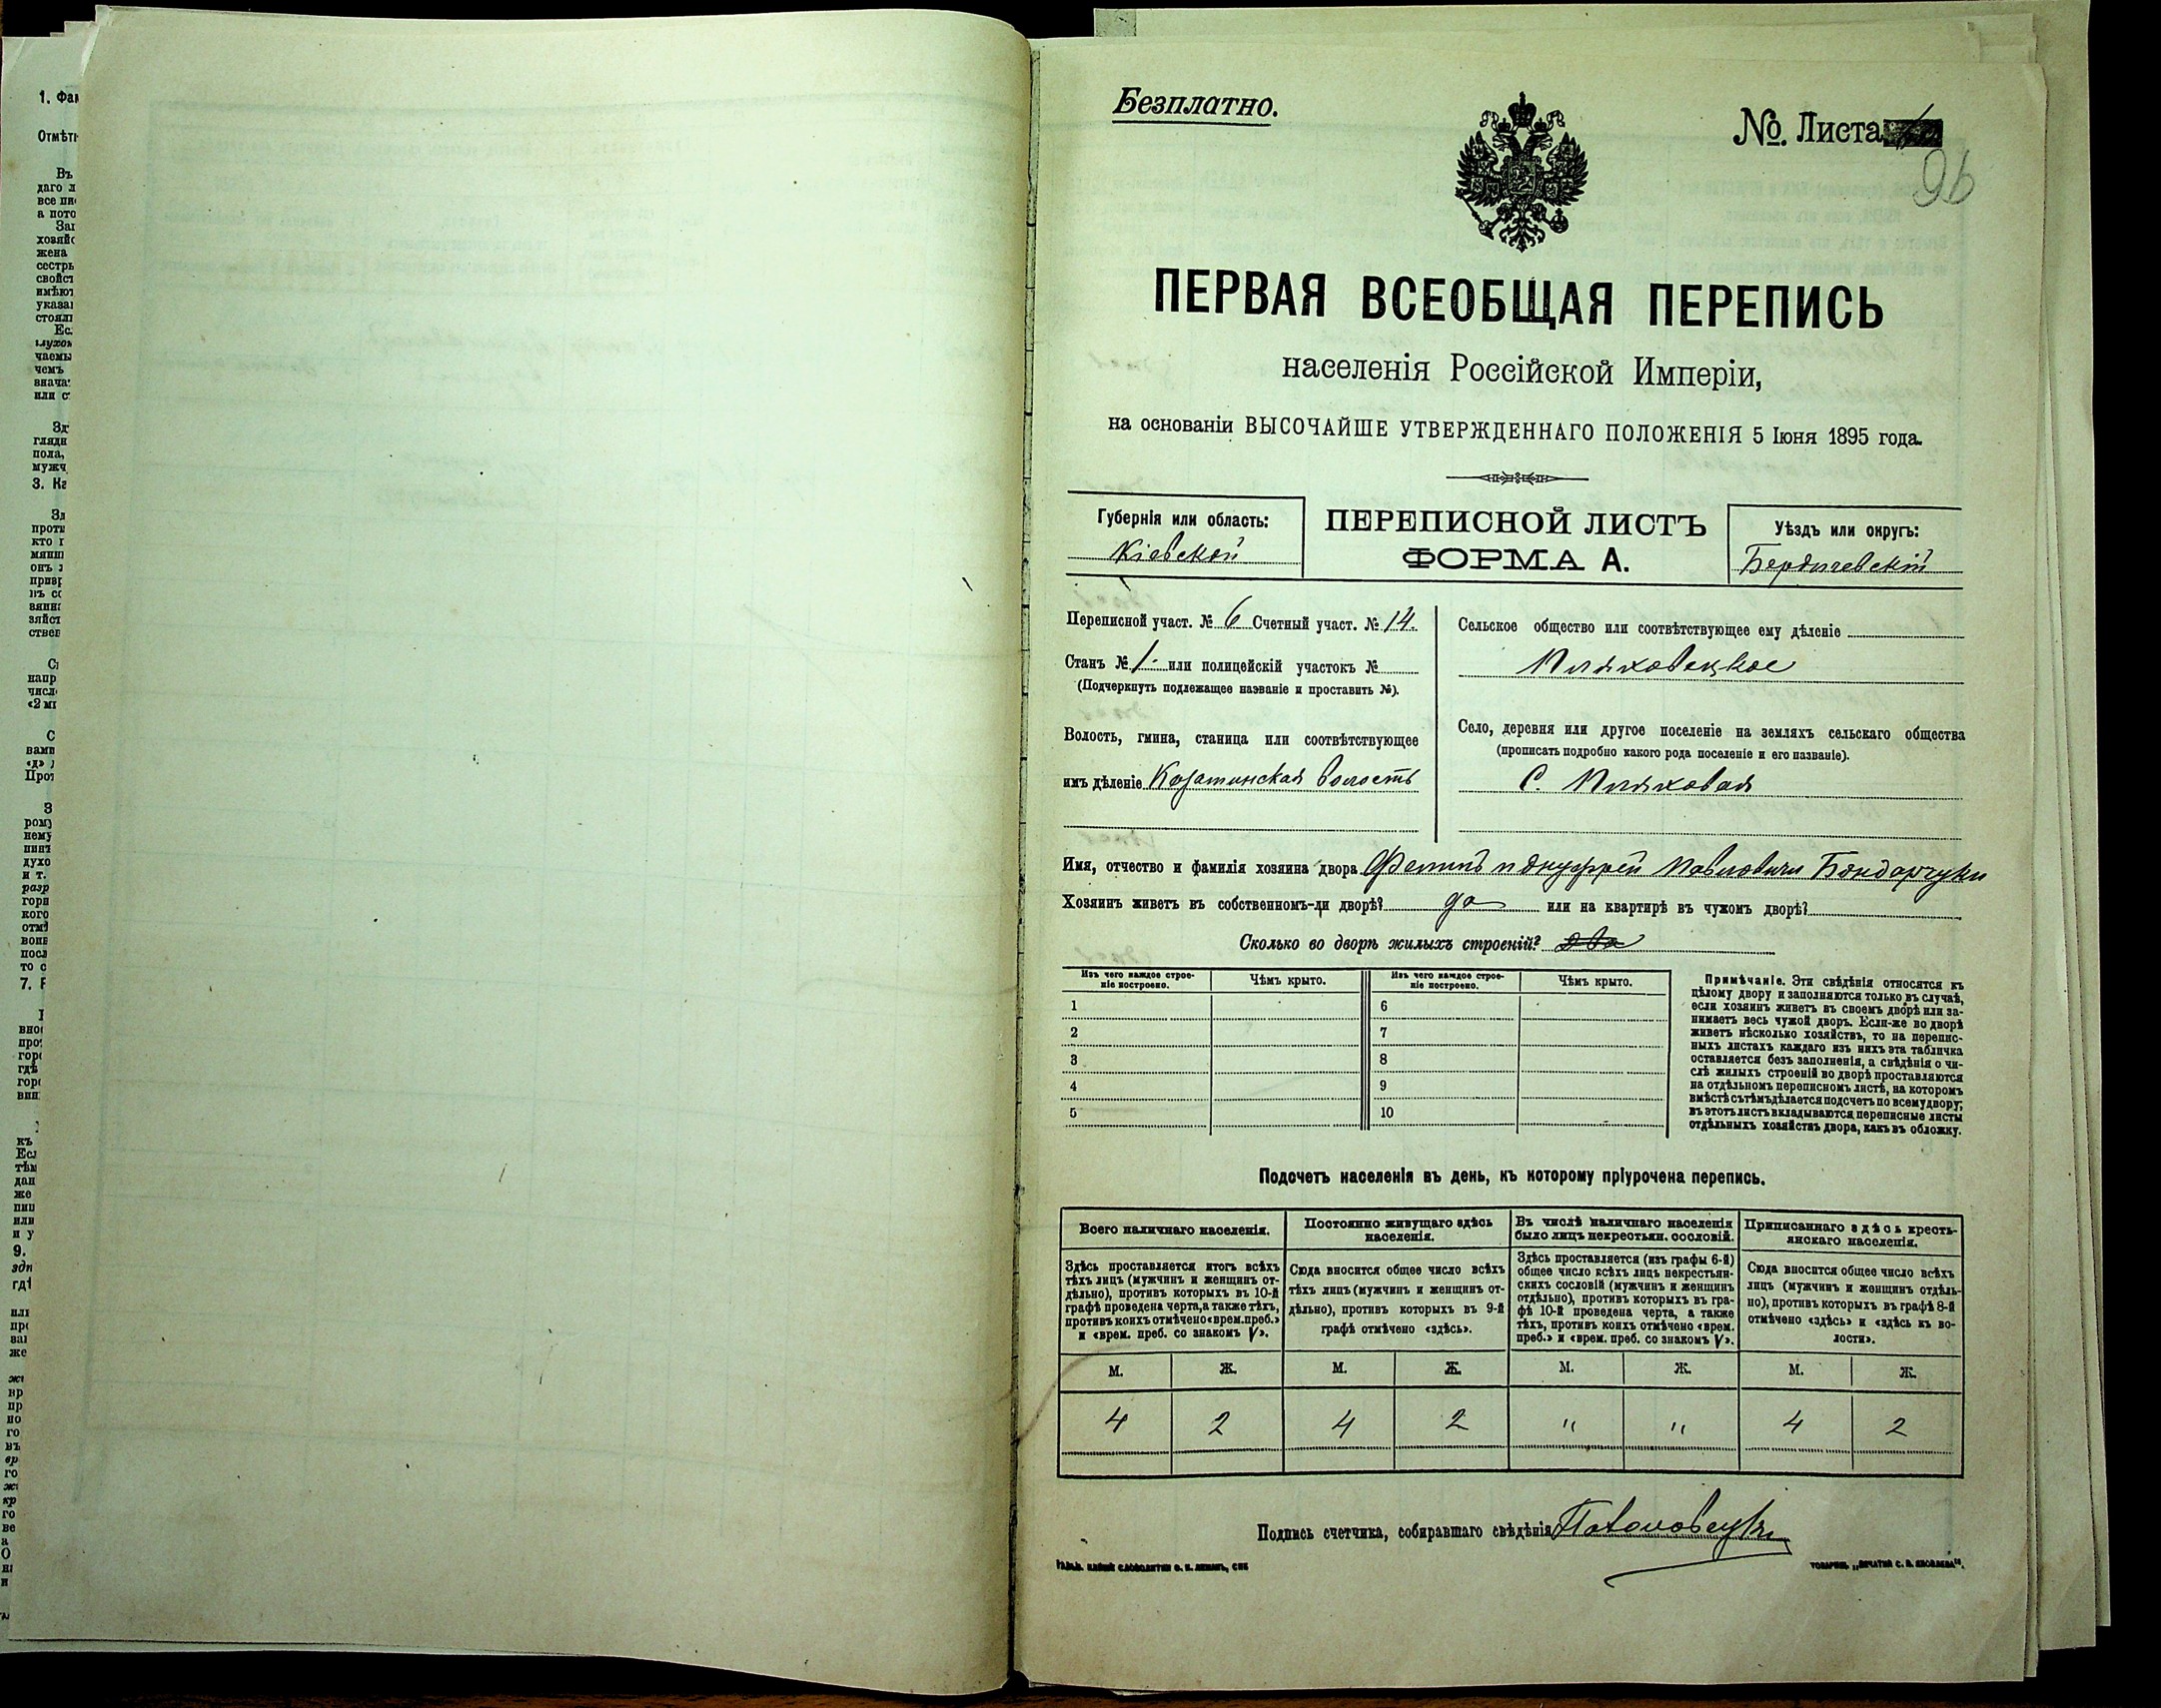 1. Фам
Отмѣтк
Безплатно.
№ Листа
96
ПЕРВАЯ ВСЕОБЩАЯ ПЕРЕПИСЬ
населенія Россійской Имперіи,
на основаніи ВЫСОЧАЙШЕ УТВЕРЖДЕННАГО ПОЛОЖЕНІЯ 5 Іюня 1895 года.
Губернія или область:
Кіевской
ПЕРЕПИСНОЙ ЛИСТЪ
ФОРМА А.
Уѣздъ или округъ:
Бердичевскій
Переписной участ. № 6 Счетный участ. № 14.
Станъ № 1. или полицейскій участокъ №
(Подчеркнуть подлежащее названіе и проставить №).
Волость, гмина, станица или соотвѣтствующее
имъ дѣленіе Козатинская волость
Сельское общество или соотвѣтствующее ему дѣленіе
Пляховецкое
Село, деревня или другое поселеніе на земляхъ сельскаго общества
(прописать подробно какого рода поселеніе и его названіе).
С. Пляховая
Имя, отчество и фамилія хозяина двора Филипъ и Онуфрей Павловичи Бондарчуки
Хозяинъ живетъ въ собственномъ-ли дворѣ? да или на квартирѣ въ чужомъ дворѣ?
Сколько во дворѣ жилыхъ строеній? два
Изъ чего каждое строе-
ніе построено.
Чѣмъ крыто.
Изъ чего каждое строе-
ніе построено.
Чѣмъ крыто.
1 6
2 7
3 8
4 9
5 10
Примѣчаніе. Эти свѣдѣнія относятся къ
цѣлому двору и заполняются только въ случаѣ,
если хозяинъ живетъ въ своемъ дворѣ или за-
нимаетъ весь чужой дворъ. Если-же во дворѣ
живетъ нѣсколько хозяйствъ, то на перепис-
ныхъ листахъ каждаго изъ нихъ эта табличка
оставляется безъ заполненія, а свѣдѣнія о чи-
слѣ жилыхъ строеній во дворѣ проставляются
на отдѣльномъ переписномъ листѣ, на которомъ
вмѣстѣ съ тѣмъ дѣлается подсчетъ по всему двору;
въ этотъ листъ вкладываются переписные листы
отдѣльныхъ хозяйствъ двора, какъ въ обложку.
Подсчетъ населенія въ день, къ которому пріурочена перепись.
Всего наличнаго населенія.
Здѣсь проставляется итогъ всѣхъ
тѣхъ лицъ (мужчинъ и женщинъ от-
дѣльно), противъ которыхъ въ 10-й
графѣ проведена черта, а также тѣхъ,
противъ коихъ отмѣчено «врем. преб.»
и «врем. преб. со знакомъ V».
Постоянно живущаго здѣсь
населенія.
Сюда вносится общее число всѣхъ
тѣхъ лицъ (мужчинъ и женщинъ от-
дѣльно), противъ которыхъ въ 9-й
графѣ отмѣчено «здѣсь».
Въ числѣ наличнаго населенія
было лицъ некрестьян. сословій.
Здѣсь проставляется (изъ графы 6-й)
общее число всѣхъ лицъ некрестьян-
скихъ сословій (мужчинъ и женщинъ
отдѣльно), противъ которыхъ въ гра-
фѣ 10-й проведена черта, а также
тѣхъ, противъ коихъ отмѣчено «врем.
преб.» и «врем. преб. со знакомъ V».
Приписаннаго здѣсь кресть-
янскаго населенія.
Сюда вносится общее число всѣхъ
лицъ (мужчинъ и женщинъ отдѣль-
но), противъ которыхъ въ графѣ 8-й
отмѣчено «здѣсь» и «здѣсь къ во-
лости».
М. Ж. М. Ж. М. Ж. М. Ж.
4 2 4 2 " " 4 2
Подпись счетчика, собиравшаго свѣдѣнія